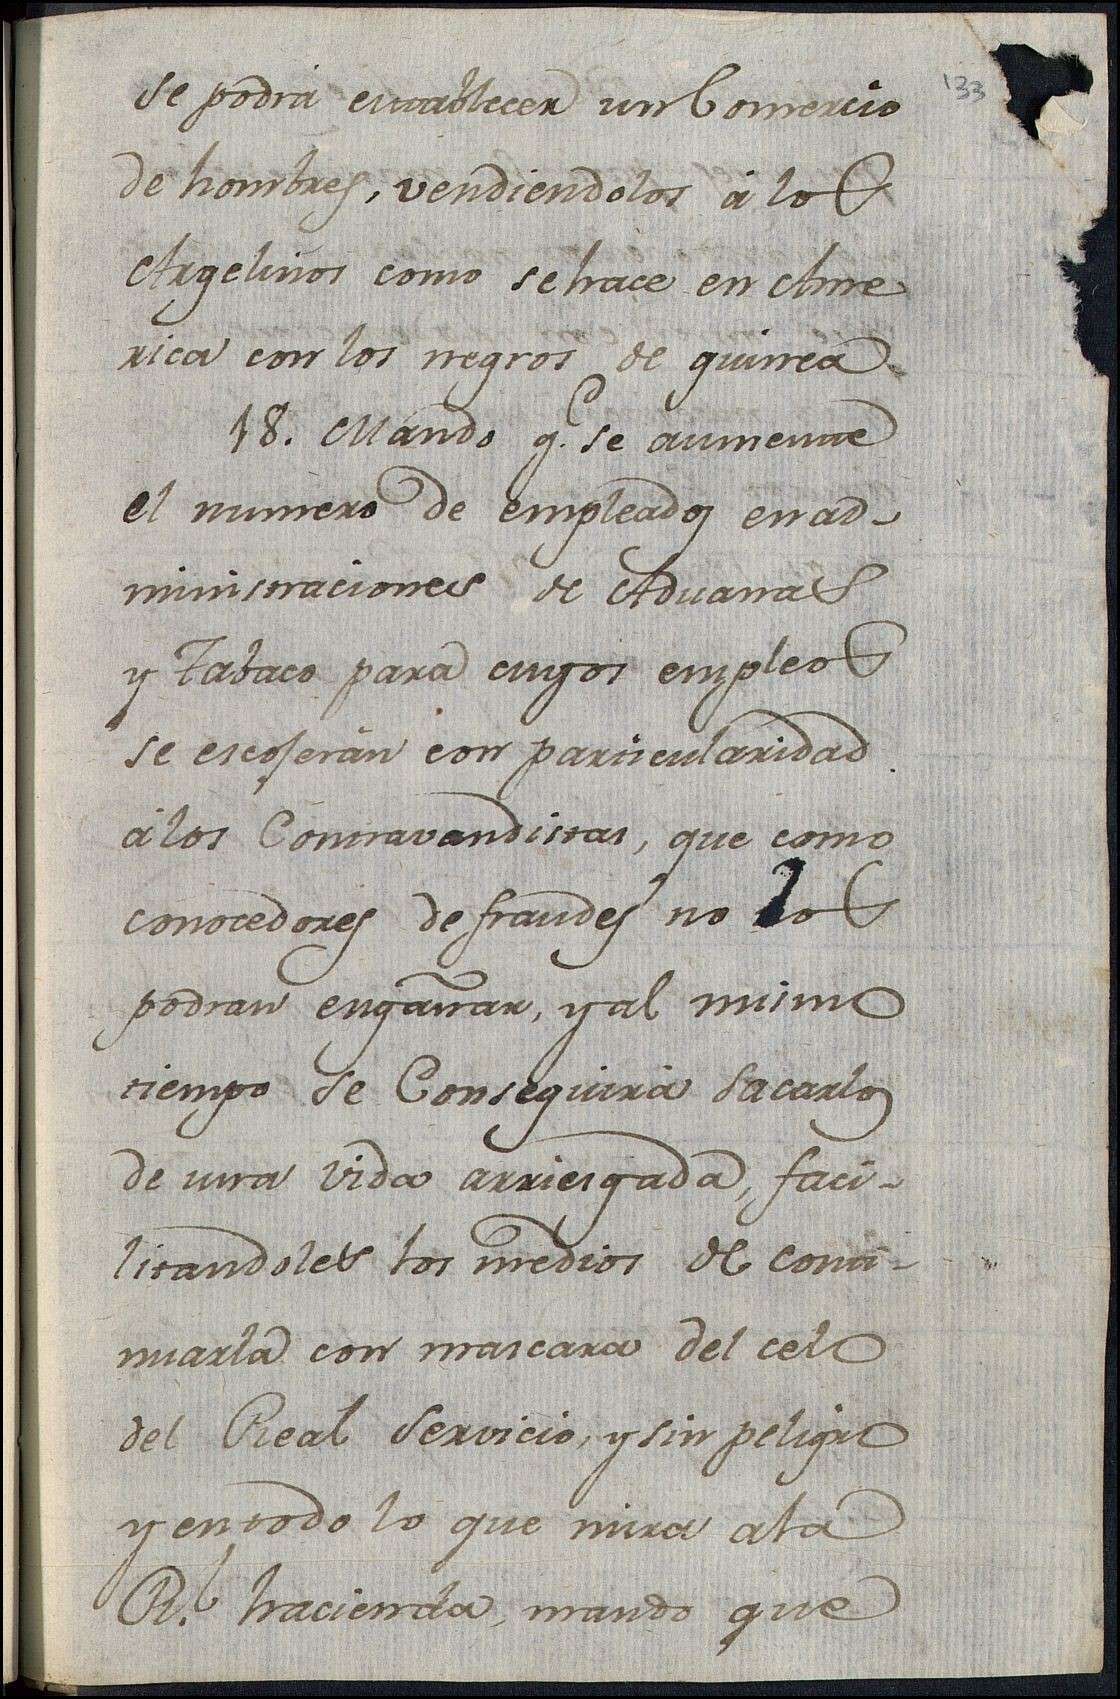 133
se podrá entablecer un Comercio
de hombres, vendiendolos á los
Argelinos como se hace en Ame
rica con los negros de guinea.
18. Mando q.e se aumente
el numero de empleados en ad-
ministraciones de Aduanas
y Tabaco para cuyos empleos
se escojerán con particularidad
á los Contravandistas, que como
conocedores de fraudes no los
podran engañar, y al mismo
tiempo se Conseguirá sacarlos
de una vida arriesgada, faci-
litandoles los medios de conti-
nuarla con mascara del celo
del Real Servicio, y sin peligro
y en todo lo que mira a la
Rl. hacienda, mando que